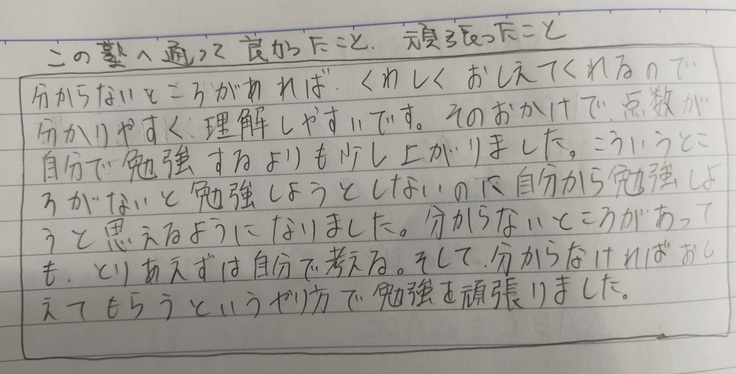 この塾へ通って良かったこと、頑張ったこと
分からないところがあれば、くわしくおしえてくれるので
分かりやすく、理解しやすいです。そのおかけで、点数が
自分で勉強するよりも少し上がりました。こういうとこ
ろがないと勉強しようとしないのに自分から勉強しよ
うと思えるようになりました。分からないところがあって
も、とりあえずは自分で考える。そして、分からなければおし
えてもらうというやり方で勉強を頑張りました。